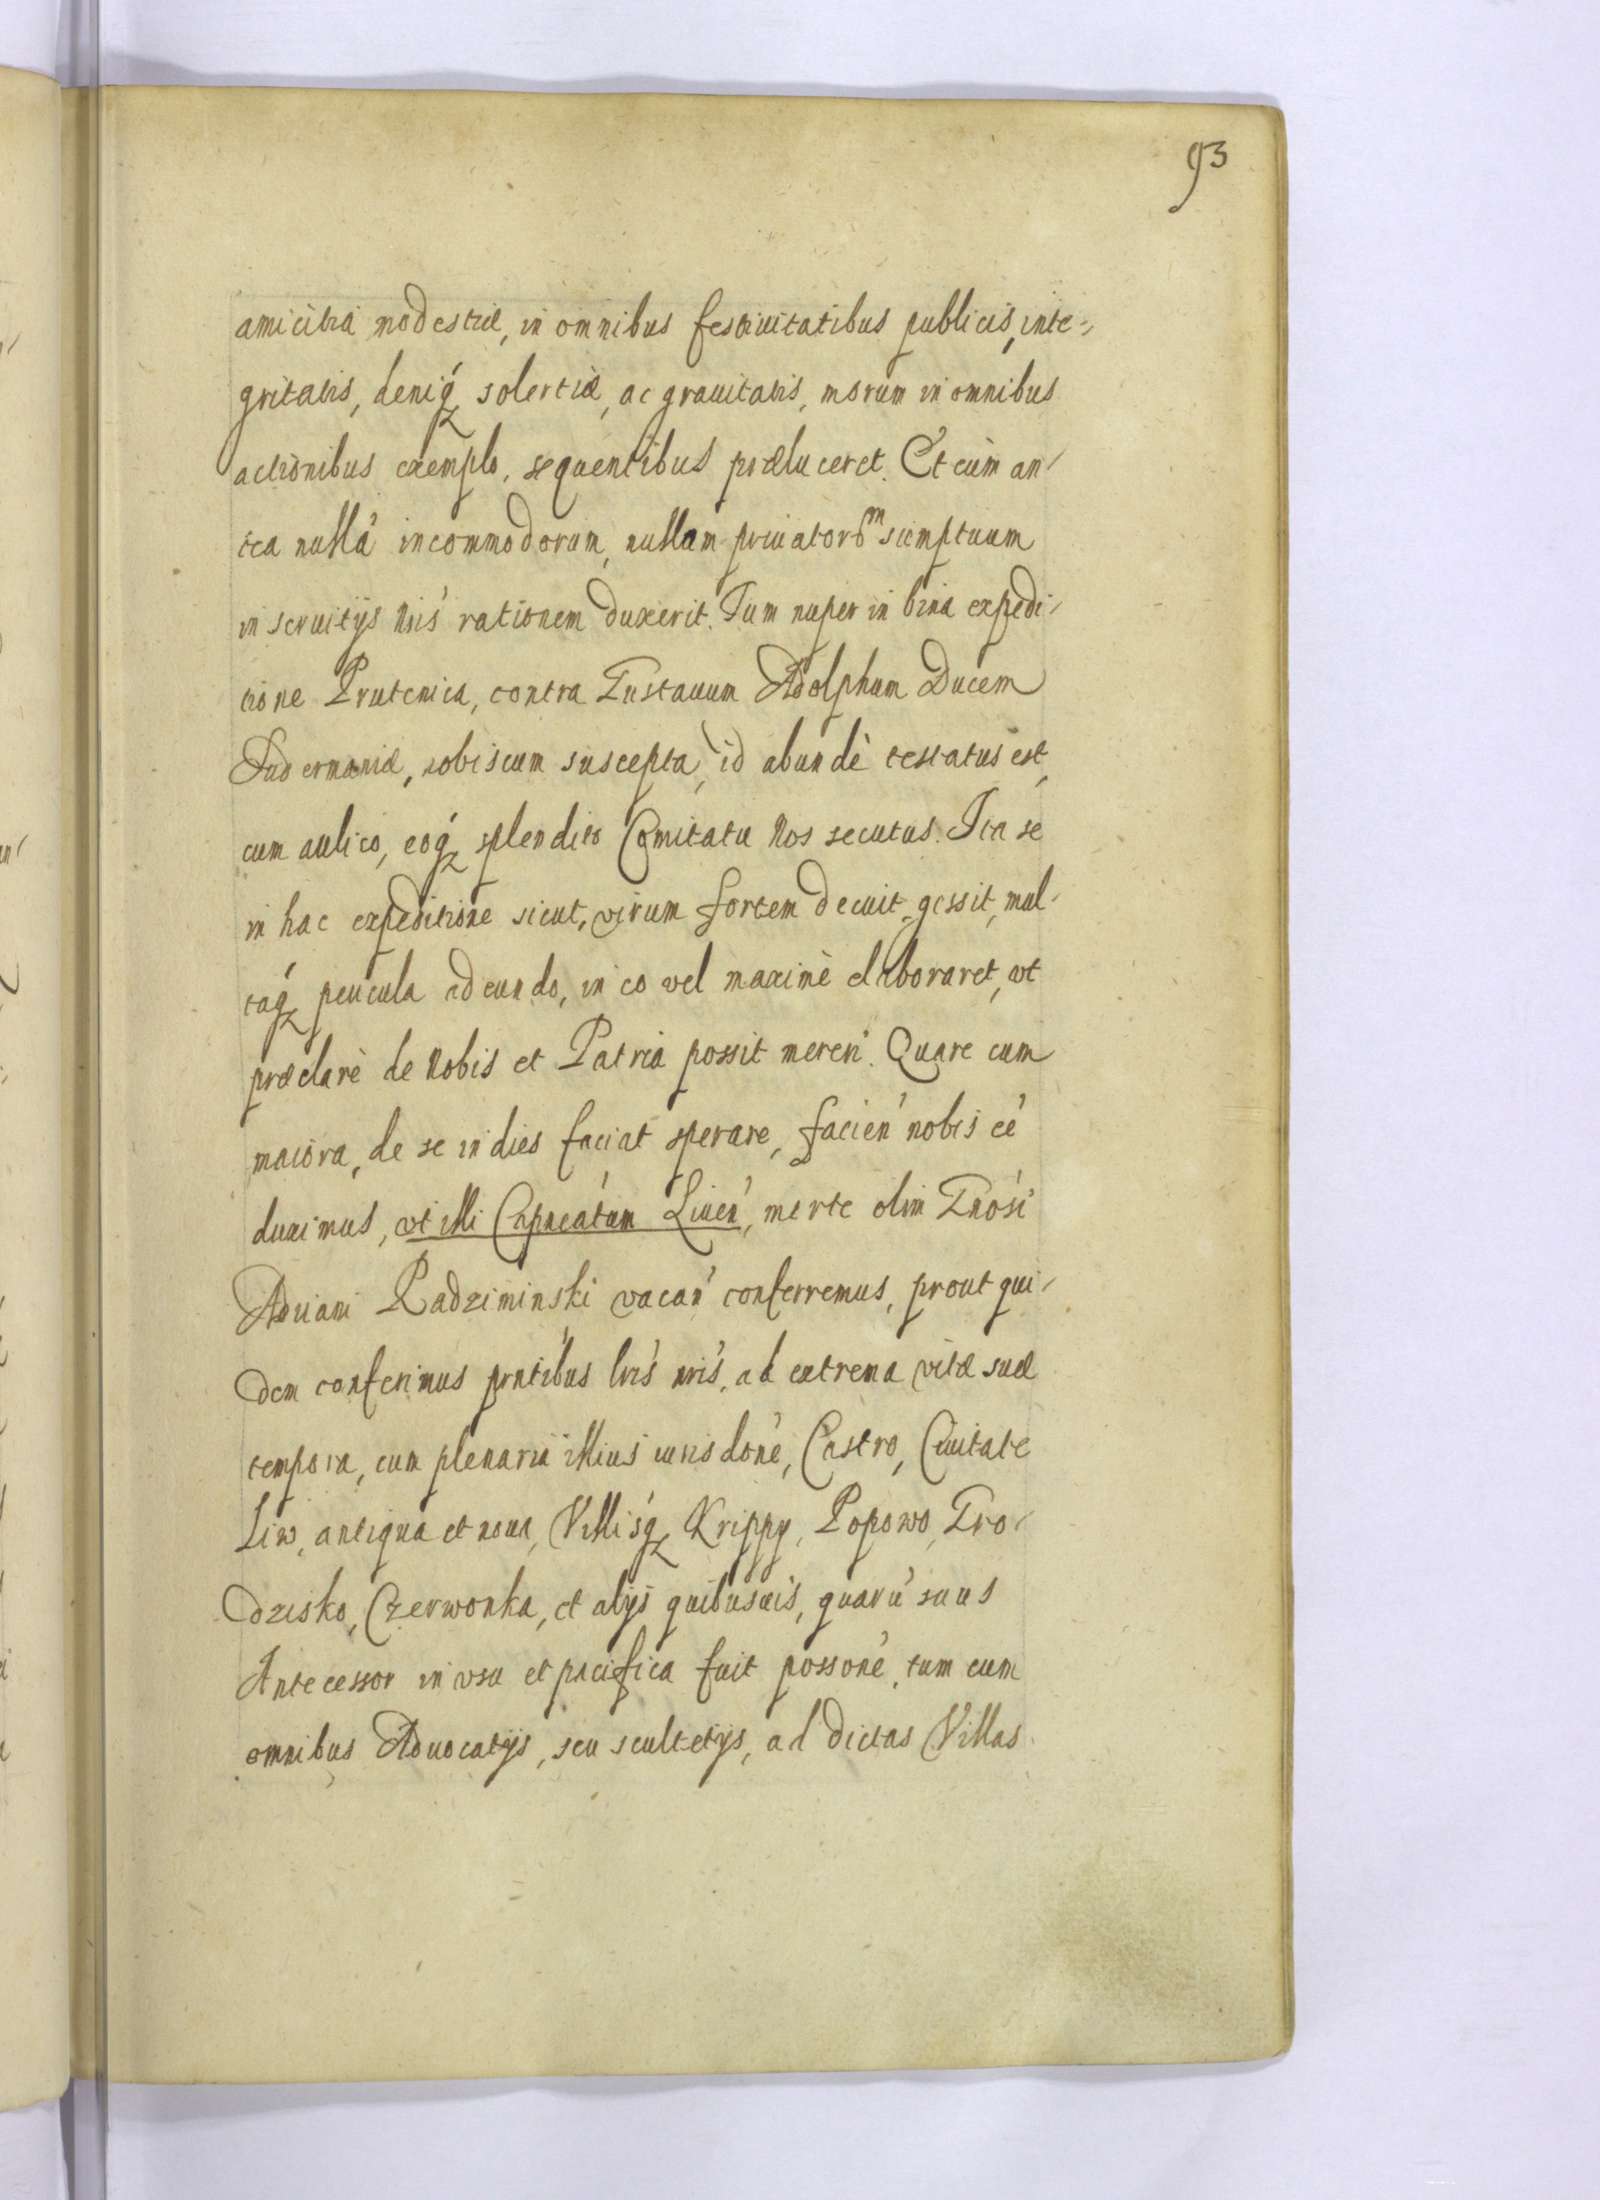 93
amicitia modestiæ, in omnibus festiuitatibus publicis, inte-
gritatis, deniq́ solertiæ, ac grauitatis, morum in omnibus
actionibus exemplo, sequentibus præluceret. Et cùm an-
tea nullá incommodorum, nullam priuatorũ sumptuum
in seruitijs nrís rationem duxerit. Tum nuper in bina expedi-
tione Prutenica, contra Gustauum Adolphum Ducem
Sudermaniæ, nobiscum suscepta, id abundè testatus est,
cum aulico, eoq́ splendito Comitatu Nos secutus. Ita se
in hac expeditione sicut, virum fortem decuit, gessit, mul-
taq́ pericula adeundo, in eo vel maximè elaboraret, vt
præclarè de Nobis et Patria possit mereri. Quare cum
maiora, de se in dies faciat sperare, facień nobis eé
duximus, vt illi Capneátum Liueń, morte olim Gnósi
Adriani Radziminski vacań conferremus, prout qui-
dem conferimus pntibús lrís nrís, ad extrema vitæ suæ
tempora, cum plenaria illius iurisdoné, Castro, Ciuitate
Liw, antiqua et noua, Villisq́ Krippy, Popowo, Gro-
dzisko, Czerwonka, et alijs quibusuis, quarú suus
Antecessor in vsu et pacifica fuit possoné, tum cum
omnibus Aduocatijs, seu scultetijs, ad dictas Villas